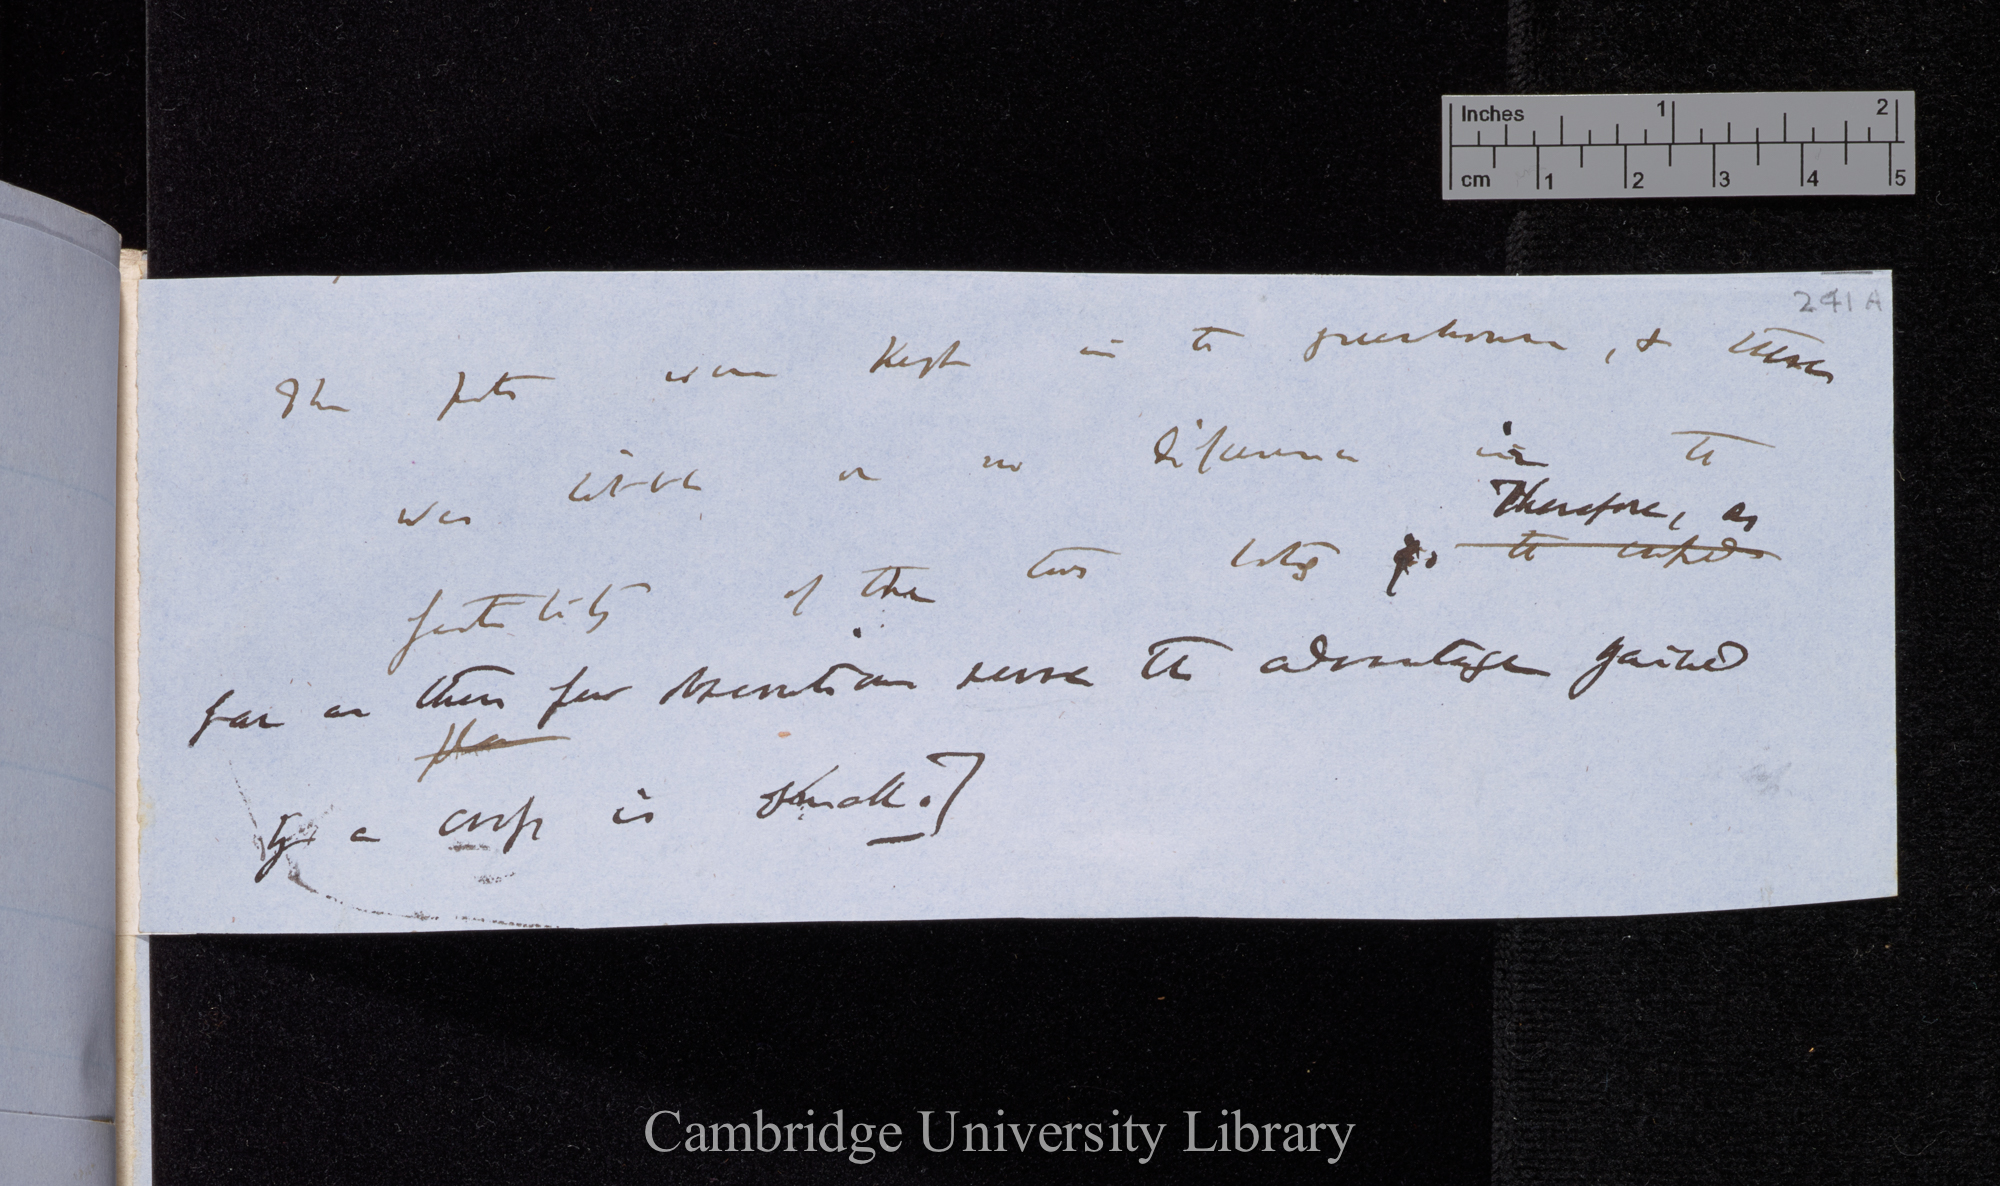 Inches 1 2
cm 1 2 3 4 5
241 A
The pots were kept in the greenhouse, & there
was little or no difference in the
Therefore, as
fertility of the two lots
far as these few observations serve the advantage gained
by a cross is small.]
Cambridge University Library